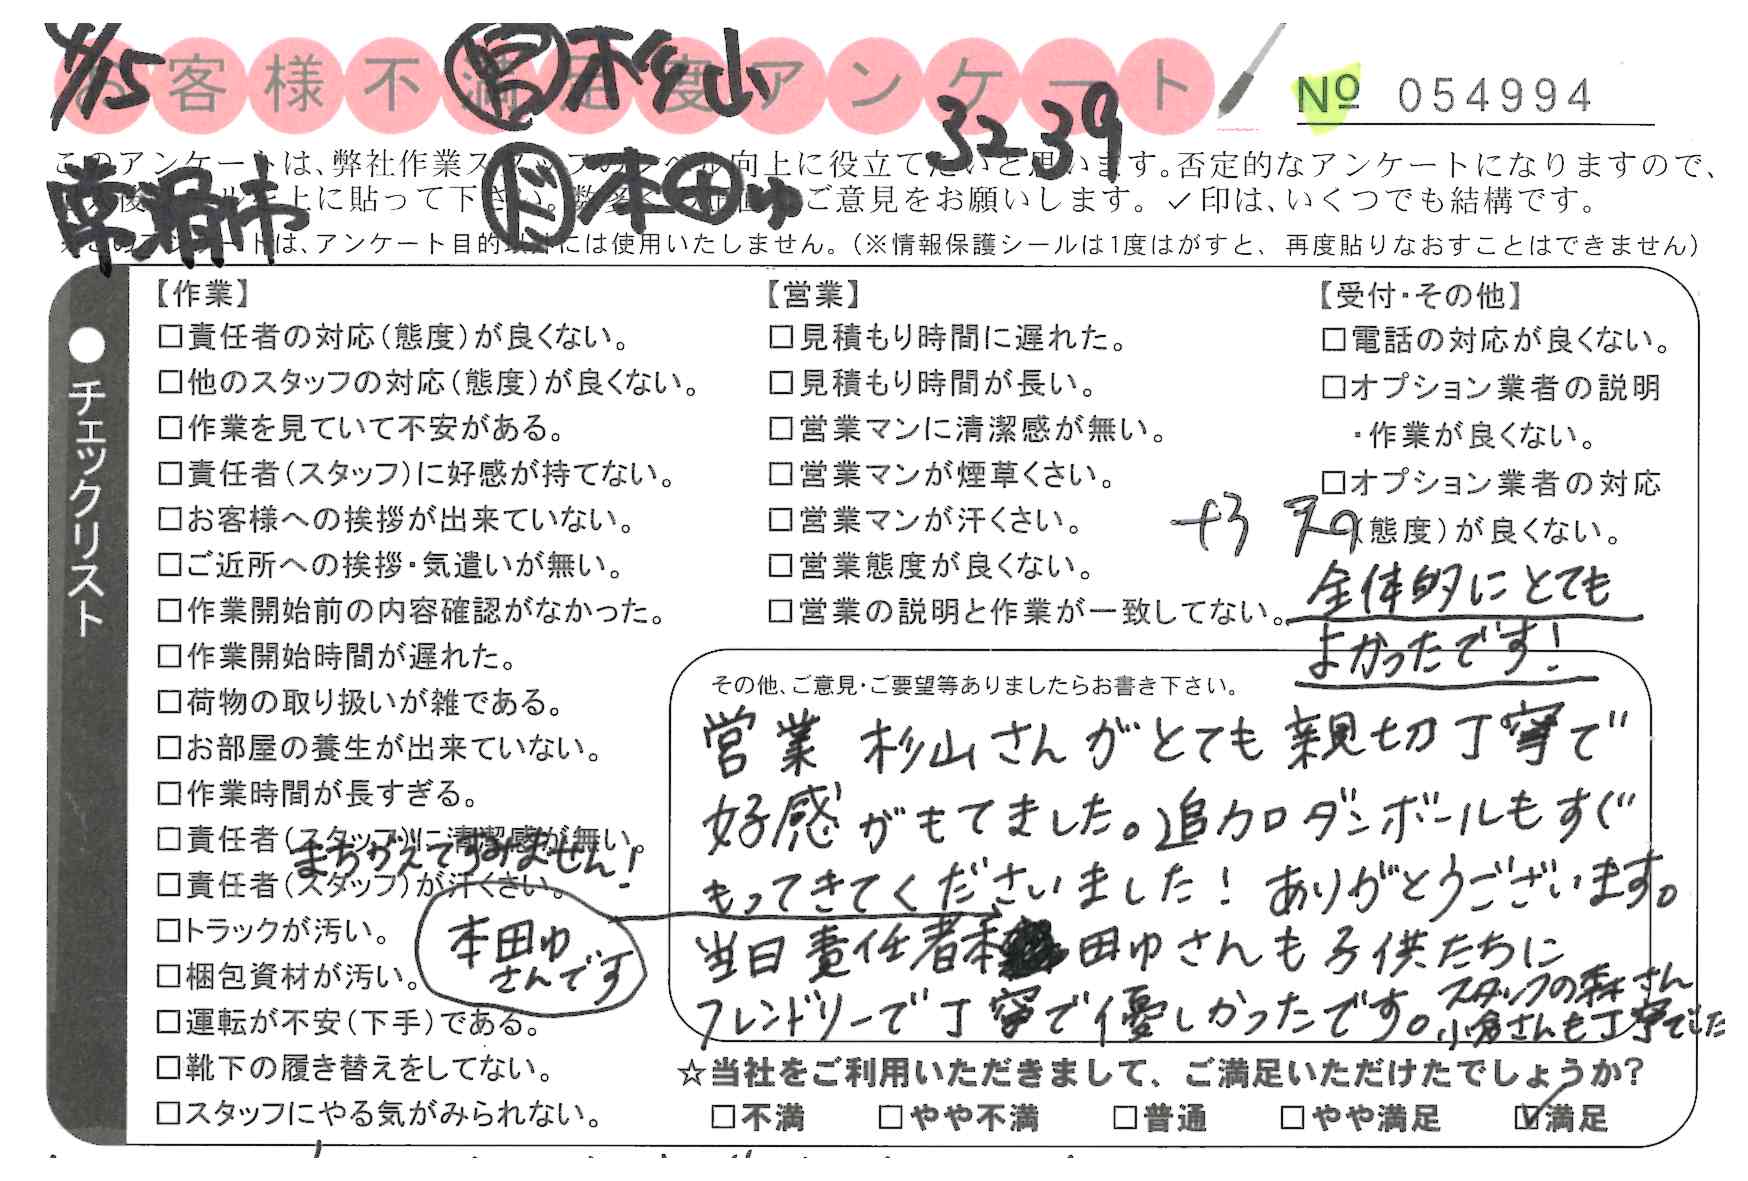 4/15 営 杉山
お客様不満足度アンケート
3239
№ 054994
このアンケートは、弊社作業スタッフのレベル向上に役立てたいと思います。否定的なアンケートになりますので、
常滑市 ド 本田ゆ
上に貼って下さい。
ご意見をお願いします。✓印は、いくつでも結構です。
※このアンケートは、アンケート目的以外には使用いたしません。(※情報保護シールは1度はがすと、再度貼りなおすことはできません)
●チェックリスト
【作業】
□責任者の対応(態度)が良くない。
□他のスタッフの対応(態度)が良くない。
□作業を見ていて不安がある。
□責任者(スタッフ)に好感が持てない。
□お客様への挨拶が出来ていない。
□ご近所への挨拶・気遣いが無い。
□作業開始前の内容確認がなかった。
□作業開始時間が遅れた。
□荷物の取り扱いが雑である。
□お部屋の養生が出来ていない。
□作業時間が長すぎる。
□責任者(スタッフ)に清潔感が無い。
□責任者(スタッフ)が汗くさい。
□トラックが汚い。
□梱包資材が汚い。
□運転が不安(下手)である。
□靴下の履き替えをしてない。
□スタッフにやる気がみられない。
まちがえてすみません!
本田ゆ
さんです
【営業】
□見積もり時間に遅れた。
□見積もり時間が長い。
□営業マンに清潔感が無い。
□営業マンが煙草くさい。
□営業マンが汗くさい。
□営業態度が良くない。
□営業の説明と作業が一致してない。
【受付・その他】
□電話の対応が良くない。
□オプション業者の説明
・作業が良くない。
□オプション業者の対応
(態度)が良くない。
全体的にとても
よかったです!
その他、ご意見・ご要望等ありましたらお書き下さい。
営業 杉山さんがとても親切丁寧で
好感がもてました。追加ダンボールもすぐ
もってきてくださいました!ありがとうございます。
当日責任者 田ゆさんも子供たちに
フレンドリーで丁寧で優しかったです。
スタッフの森さん
小倉さんも丁寧でした
☆当社をご利用いただきまして、ご満足いただけたでしょうか?
□不満 □やや不満 □普通 □やや満足 ☑満足